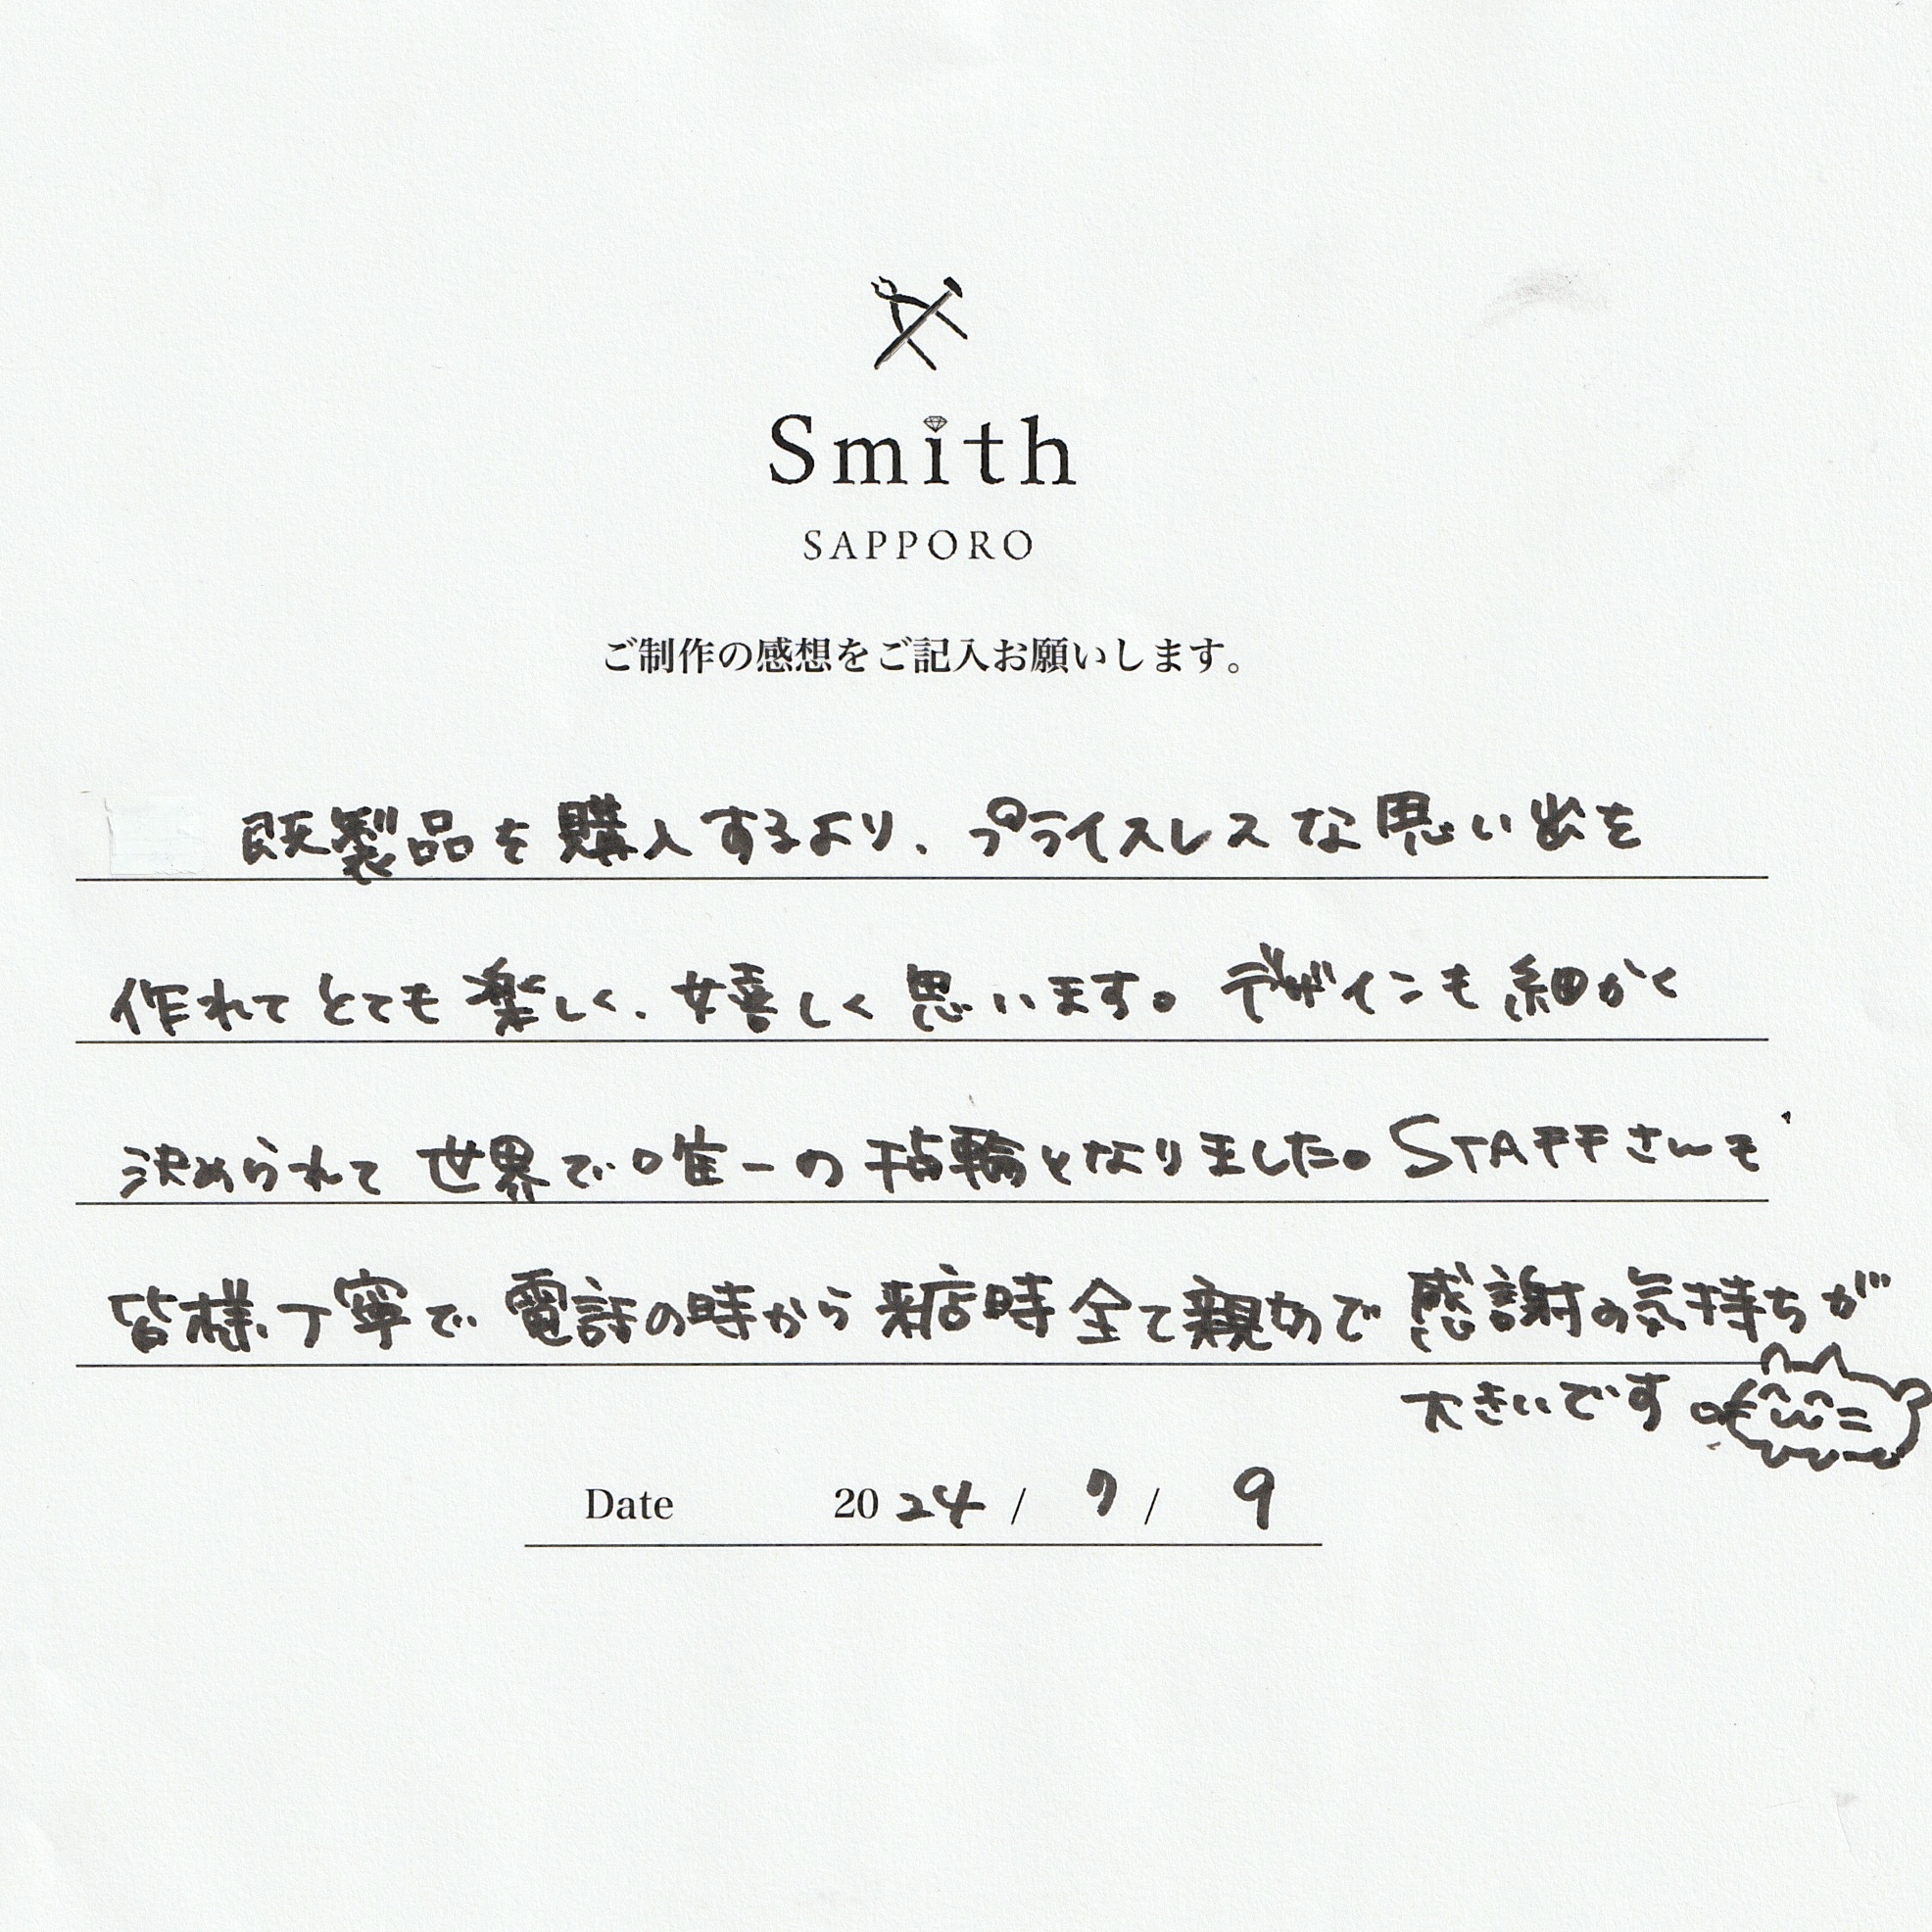 Smith
SAPPORO
ご制作の感想をご記入お願いします。
既製品を購入するより、プライスレスな思い出を
作れてとても楽しく、嬉しく思います。デザインも細かく
決められて世界で唯一の指輪となりました。STAFFさんも
皆様、丁寧で電話の時から来店時全て親切で感謝の気持ちが
大きいです。
Date 2024 / 7 / 9